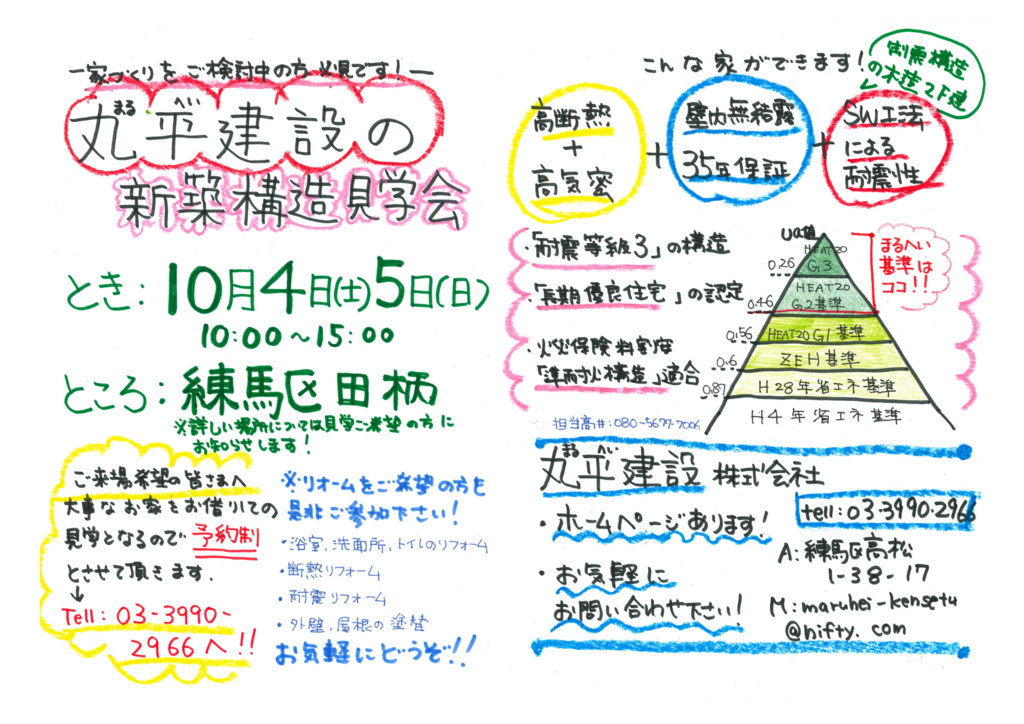 ー家づくりをご検討中の方必見です！ー
まる へい
丸平建設の
新築構造見学会
とき：10月4日(土)5日(日)
10:00～15:00
ところ：練馬区田柄
※詳しい場所については見学ご希望の方に
お知らせします！
ご来場希望の皆さまへ
大事なお家をお借りしての
見学となるので予約制
とさせて頂きます.
↓
Tell：03-3990-
2966へ!!
※リオームをご希望の方も
是非ご参加下さい！
・浴室、洗面所、トイレのリフォーム
・断熱リフォーム
・耐震リフォーム
・外壁、屋根の塗替
お気軽にどうぞ!!
こんな家ができます！
制震構造
の木造2F建
高断熱
+
高気密
+
壁内無結露
35年保証
+
SW工法
による
耐震性
・「耐震等級3」の構造
・「長期優良住宅」の認定
・火災保険料割安
「準耐火構造」適合
UA値
HEAT20
G3
0.26
HEAT20
G2基準
0.46
HEAT20 G1基準
0.56
ZEH基準
0.6
H28年省エネ基準
0.87
H4年省エネ基準
まるへい
基準は
ココ!!
担当高井：080-5677-7006
まる へい
丸平建設 株式会社
tell：03-3990-2966
・ホームページあります！
・お気軽に
お問い合わせ下さい！
A：練馬区高松
1-38-17
M：maruhei-kensetu
@nifty.com